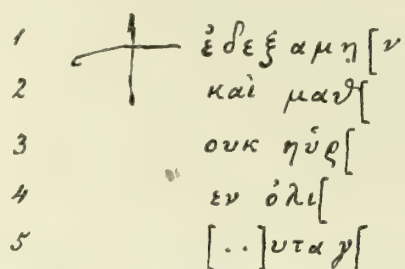 1 ἐδεξαμη[ν
2 καὶ μαθ[
3 ουκ ηὑρ[
4 εν ὀλι[
5 [..]υτα γ[